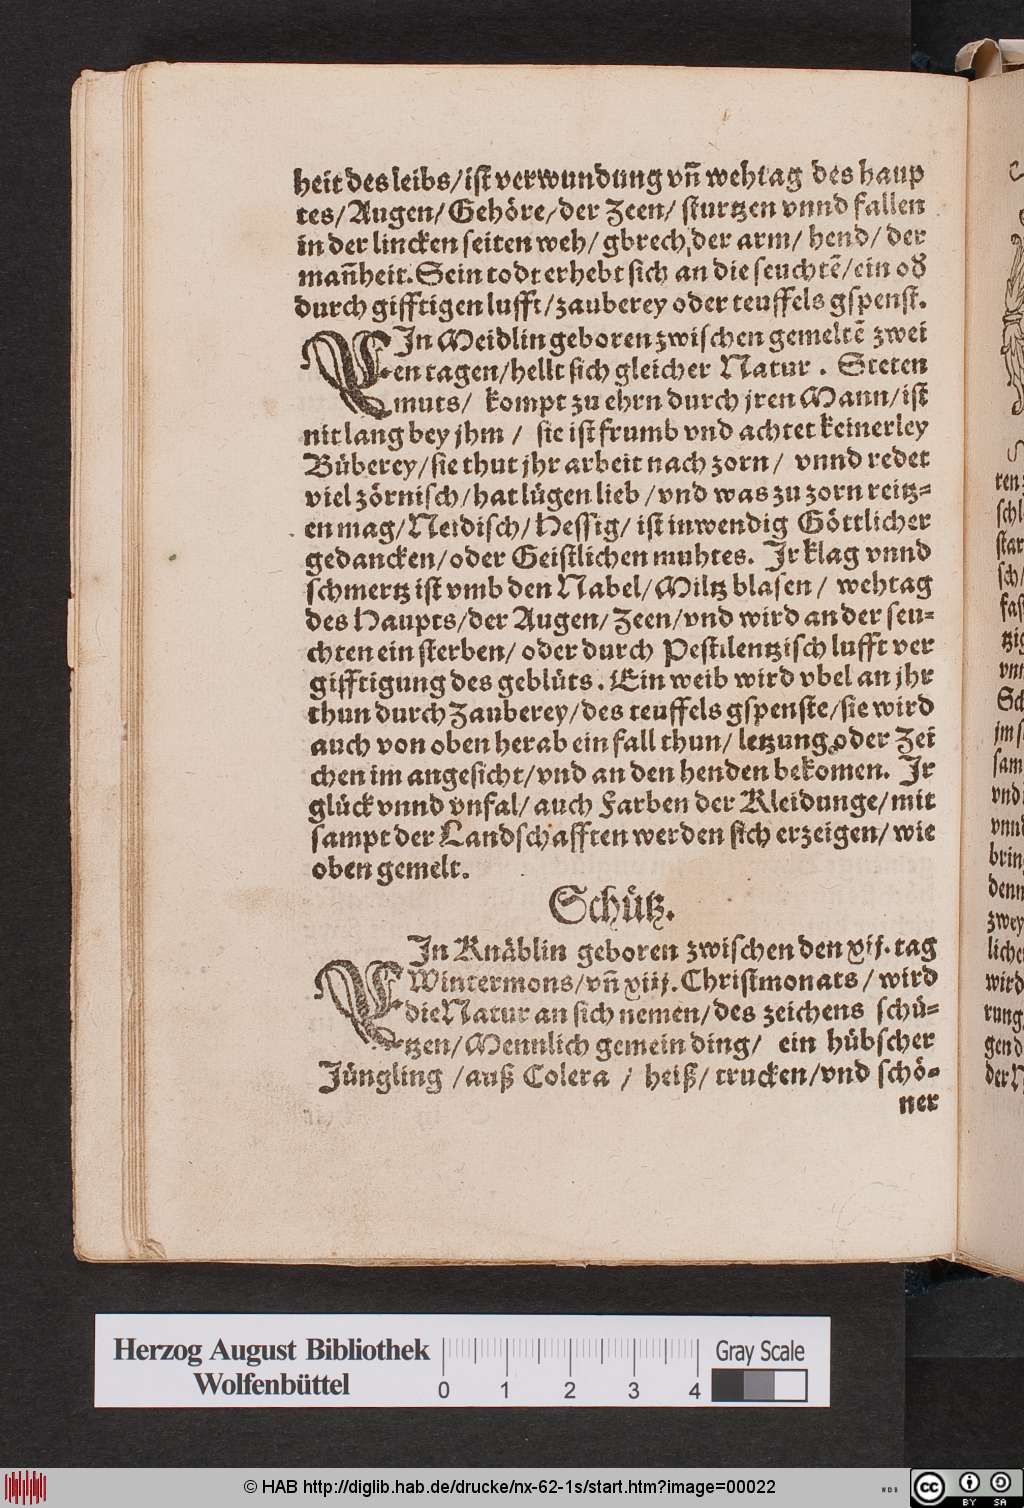 heit des leibs/ist verwundung vñ wehtag des haup
tes/Augen/Gehöre/der Zeen/ sturtzen vnnd fallen
in der lincken seiten weh/ gbrech der arm/ hend/ der
mañheit. Sein todt erhebt sich an die seuchtẽ/ein oď
durch gifftigen lufft/zauberey oder teuffels gspenst.
EIn Meidlin geboren zwischen gemeltẽ zwei
en tagen/hellt sich gleicher Natur . Steten
muts/ kompt zu ehrn durch jren Mann/ist
nit lang bey jhm / sie ist frumb vnd achtet keinerley
Büberey/sie thut jhr arbeit nach zorn/ vnnd redet
viel zörnisch/hat lügen lieb /vnd was zu zorn reitz=
en mag/Neidisch/Hessig/ ist inwendig Göttlicher
gedancken/oder Geistlichen muhtes. Jr klag vnnd
schmertz ist vmb den Nabel/Miltz blasen/ wehtag
des Haupts/der Augen/Zeen/vnd wird an der seu=
chten ein sterben/ oder durch Pestilentzisch lufft ver
gifftigung des geblüts. Ein weib wird vbel an jhr
thun durch Zauberey/des teuffels gspenste/sie wird
auch von oben herab ein fall thun/ letzung oder Zei
chen im angesicht/vnd an den henden bekomen. Jr
glück vnnd vnfal/ auch Farben der Kleidunge/mit
sampt der Landschafften werden sich erzeigen/ wie
oben gemelt.
Schütz.
EIn Knäblin geboren zwischen den xij. tag
Wintermons/vñ xiij. Christmonats/ wird
die Natur an sich nemen/des zeichens schü=
tzen/Mennlich gemein ding/ ein hübscher
Jüngling /auß Colera / heiß/ trucken/vnd schö=
ner
ren
schl
star
sch/
fast
tzig
vnn
Sch
jm s
sam
vnd
vnnd
bring
denn
zwey
liche
wird
rung
gen d
der N
Herzog August Bibliothek
Wolfenbüttel
0 1 2 3 4
Gray Scale
© HAB http://diglib.hab.de/drucke/nx-62-1s/start.htm?image=00022
WDB
cc BY SA